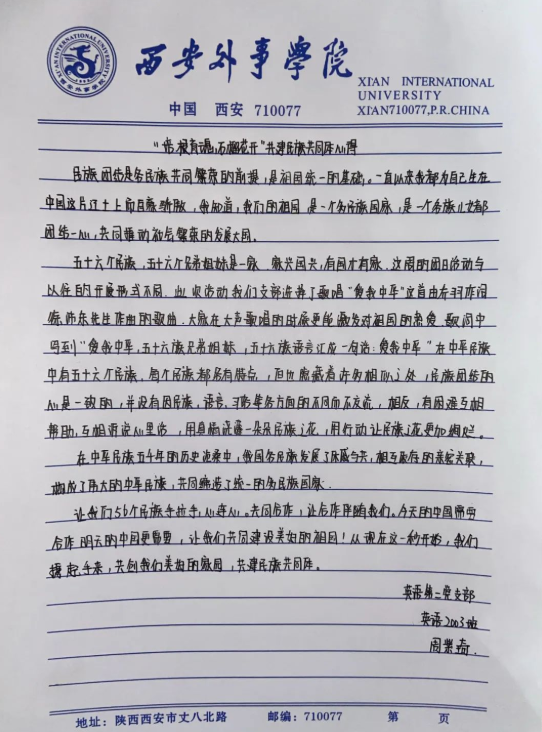 XI'AN INTERNATIONAL UNIVERSITY
西安外事学院
西安外事學院
XI'AN INTERNATIONAL
UNIVERSITY
中国 西安 710077
XI'AN710077,P.R.CHINA
籽根育魂,石榴花开"共建民族共同体心得
民族团结是各民族共同繁荣的前提,是祖国统一的基础。一直以来我都为自己生在
中国这片江土上而自豪骄傲,我知道,我们的祖国是一个多民族国家,是一个各族儿女都
团结一心,共同推动和谐繁荣的发展大国。
五十六个民族,五十六个兄弟姐妹是一家 家兴国兴,有国才有家.这周的团日活动与
以往的开展形式不同.此次活动我们支部选择了歌唱"爱我中华"这首由乔羽作词
徐沛东先生作曲的歌曲.大家在大声歌唱的时候更能激发对祖国的热爱.歌词中
写到"爱我中华,五十六族兄弟姐妹,五十六族语言汇成一句话:爱我中华"在中华民族
中有五十六个民族,每个民族都各有特点,但也蕴藏着许多相似之处,民族团结的
心是一致的,并没有因民族,语言,习俗等多方面的不同而不交流,相反,有困难互相
帮助,互相诉说心里话,用真情浇灌一朵朵民族之花,用行动让民族之花更加绚烂。
在中华民族五千年的历史长河中,我国各民族发展了休戚与共,相互依存的亲密关联,
构成了伟大的中华民族,共同缔造了统一的多民族国家.
让我们56个民族手拉手,心连心.共同合作,让合作伴随我们。今天的中国需要
合作 明天的中国更需要,让我们共同建设美好的祖国!从现在这一秒开始,我们
携起手来,共创我们美好的家园,共建民族共同体。
英语第二党支部
英语2003班
地址:陕西西安市丈八北路 邮编:710077 第 页